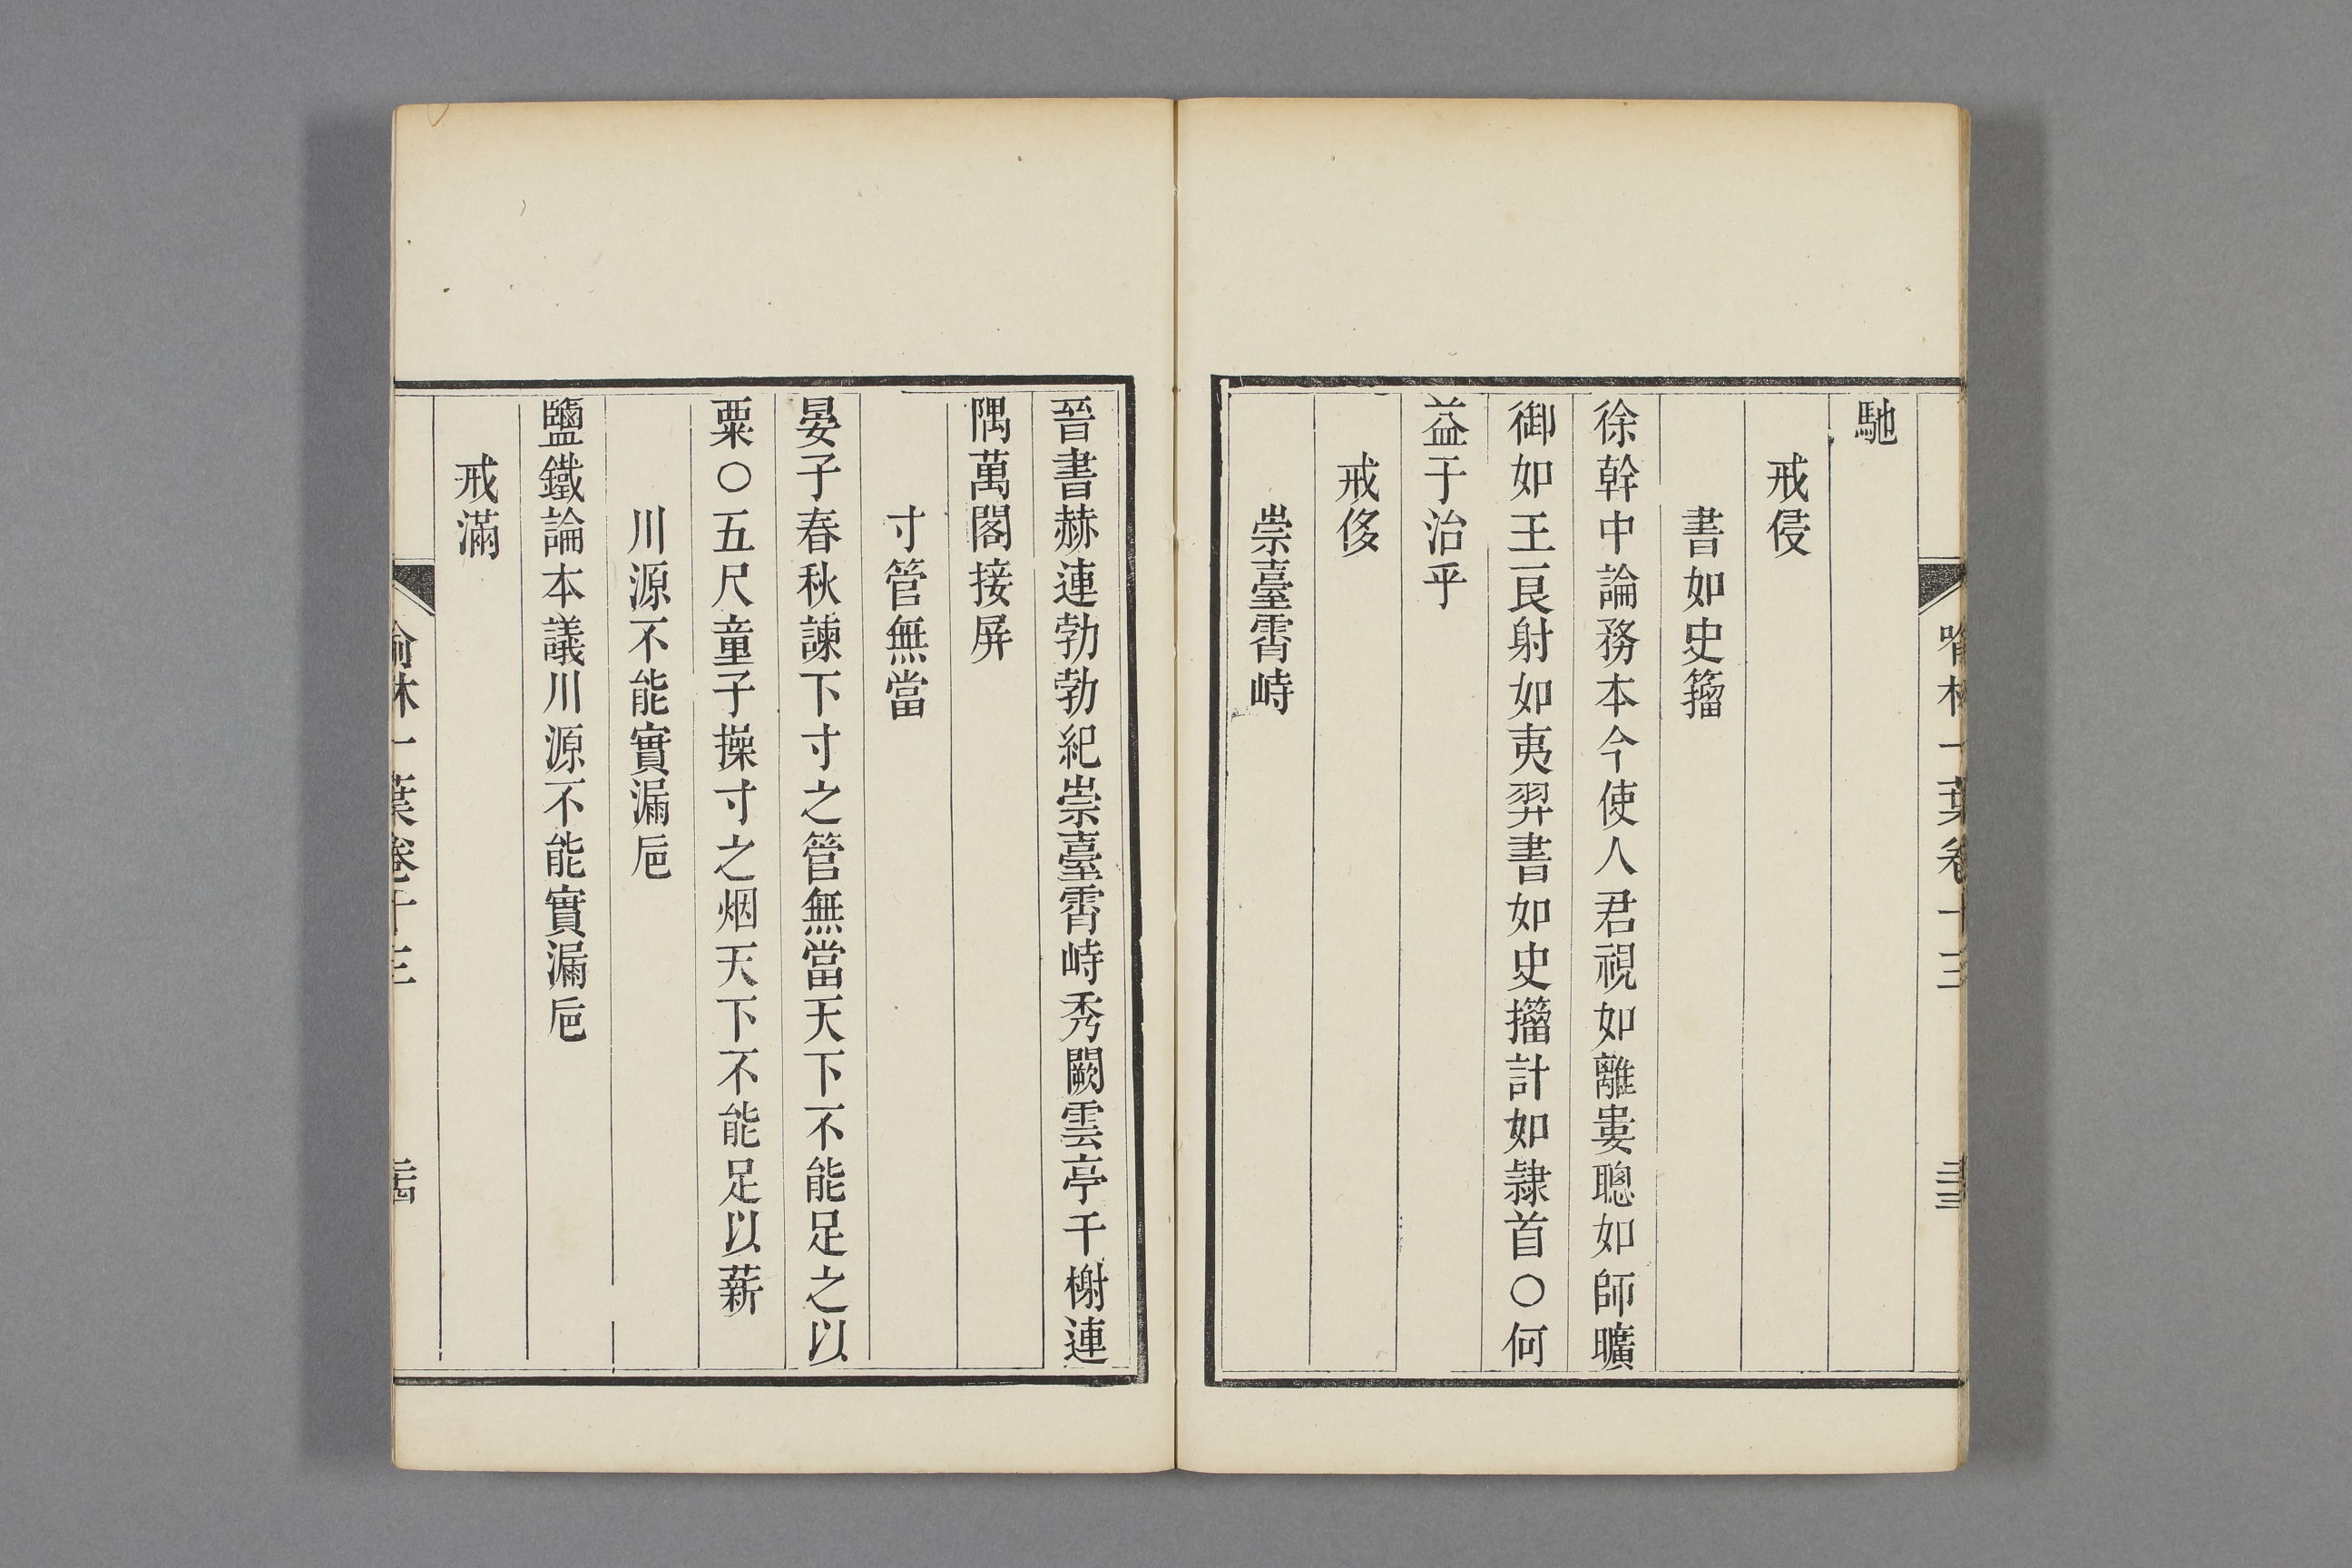 喻林一葉卷十三
馳
戒侵
書如史籀
徐幹中論務本今使人君視如離婁聰如師曠
御如王良射如夷羿書如史籀計如隷首○何
益于治乎
戒侈
崇臺霄峙
晉書赫連勃勃紀崇臺霄峙秀闕雲亭千榭連
隅萬閣接屏
寸管無當
晏子春秋諫下寸之管無當天下不能足之以
粟○五尺童子操寸之烟天下不能足以薪
川源不能實漏巵
鹽鐵論本議川源不能實漏巵
戒滿
喻林一葉卷十三